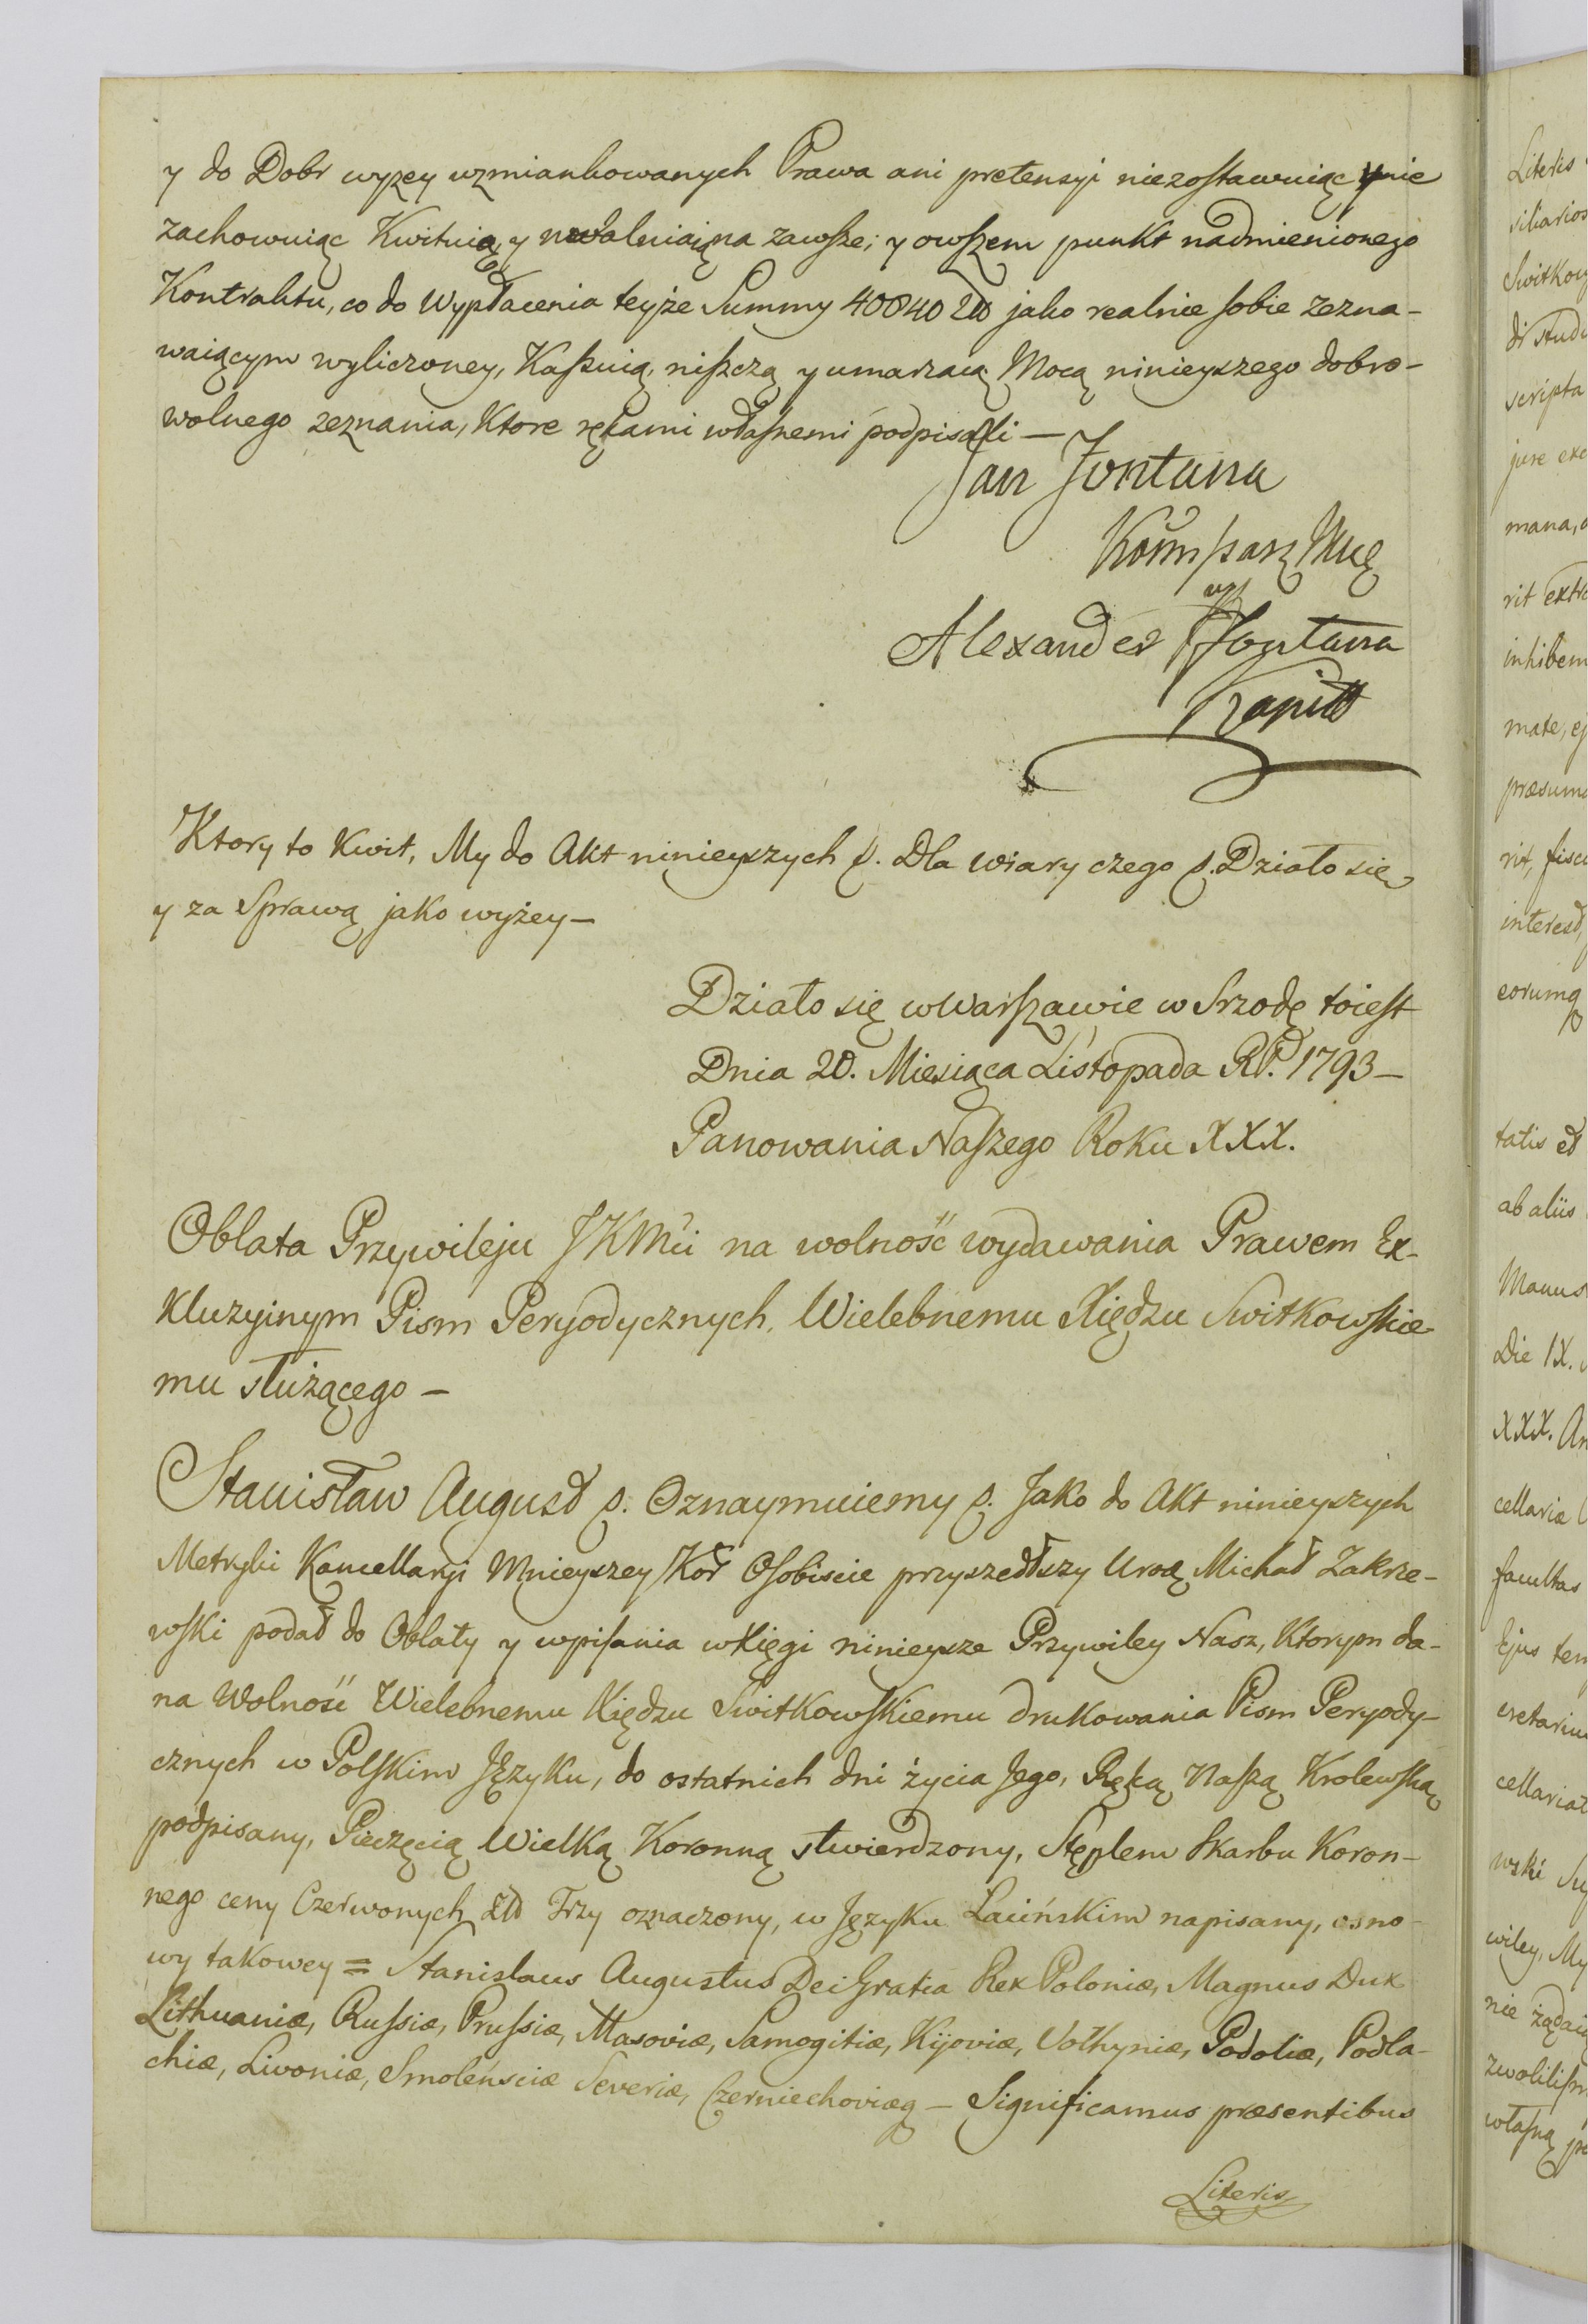 y do Dobr wyzey wzmiankowanych Prawa ani pretensyi niezostawuiąc y nie
zachowuiąc Kwituią, y uwalniaią na zawsze; y owszem punkt nadmienionego
Kontraktu, co do Wypłacenia teyże Summy 40840 Zł jako realnie sobie zezna-
waiącym wyliczoney, Kassuią, niszczą y umarzaią Mocą ninieyszego dobro-
wolnego zeznania, Ktore rękami własnemi podpisali —
Jan Fontana
Alexander Fontana
Kapitt
Ktory to Kwit, My do Akt ninieyszych p. Dla wiary czego p. Działo się
y za Sprawą jako wyżey —
Działo się w Warszawie w Srzodę toiest
Dnia 20. Miesiąca Listopada RP. 1793 —
Panowania Naszego Roku XXX.
Oblata Przywileju JKMći na wolność wydawania Prawem Ex-
kluzyinym Pism Peryodycznych, Wielebnemu Xiędzu Switkowskie
mu służącego —
Stanisław August p. Oznaymuiemy p. Jako do Akt ninieyszych
Metryki Kancellaryi Mnieyszey Kor Osobiscie przyszedłszy Urod. Michał Zakrze-
wski podał do Oblaty y wpisania w Xięgi ninieysze Przywiley Nasz, Ktorym da-
na Wolność Wielebnemu Xiędzu Switkowskiemu drukowania Pism Peryody-
cznych w Polskim Języku, do ostatnich dni życia Jego, Ręką Naszą Krolewską
podpisany, Pieczęcią Wielką Koronną stwierdzony, Stęplem Skarbu Koron-
nego ceny Czerwonych Zł Trzy oznaczony, w Języku Łacińskim napisany, osno-
wy takowey = Stanislaus Augustus Dei Gratia Rex Poloniæ, Magnus Dux
Lithuaniæ, Russiæ, Prussiæ, Masoviæ, Samogitiæ, Kijoviæ, Volhyniæ, Podoliæ, Podla-
chiæ, Livoniæ, Smolensciæ Severiæ, Czerniechoviæq — Significamus præsentibus
Literis
Literis
siliarios
Switkow
scripta
jure exc
mana,
rit extra
inhibem
mate, ej
præsum
rit, fisc
interest,
eorumq
tatis et
ab aliis
Manus
Die IX.
XXX. An
cellariæ
facultas
Ejus tem
cretariu
cellariat
wski
wiley, My
nie żądaią
zwolilism
własną